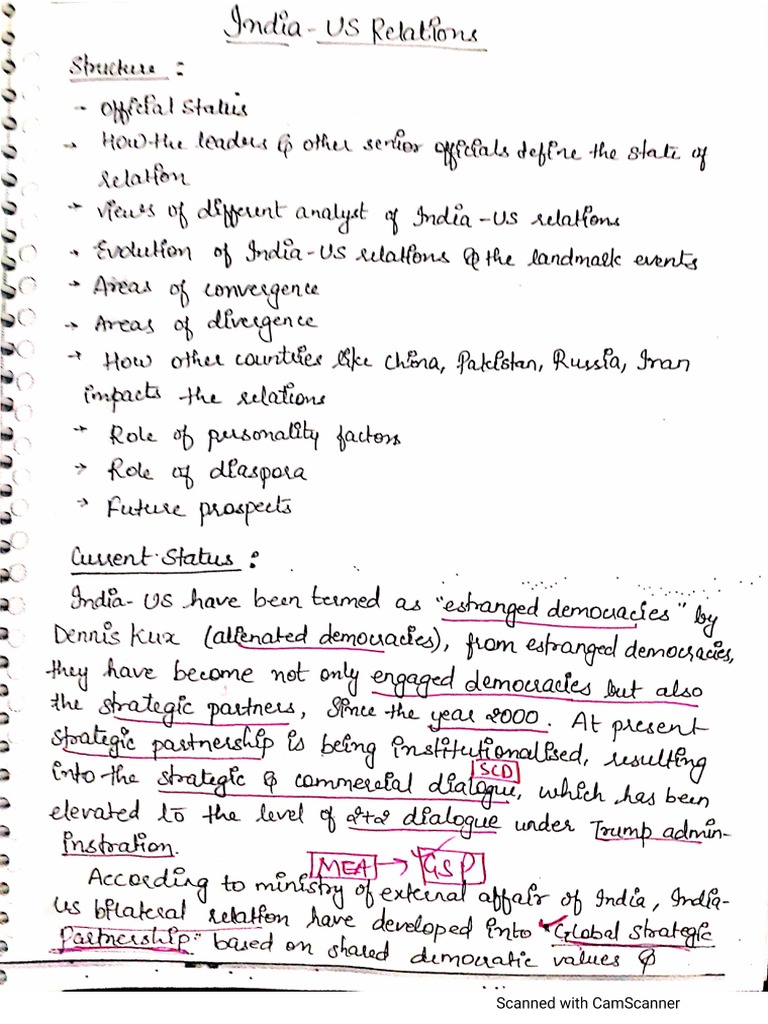 India-US Relations
Structure :
- Official Status
→ How the leaders & other senior officials define the state of
relation
→ views of different analyst of India-US relations
→ Evolution of India-US relations & the landmark events
→ Areas of convergence
→ Areas of divergence
→ How other countries like China, Pakistan, Russia, Iran
impacts the relations
→ Role of personality factors
→ Role of diaspora
→ Future prospects
Current Status :
India-US have been termed as "estranged democracies" by
Dennis Kux (alienated democracies), from estranged democracies,
they have become not only engaged democracies but also
the strategic partners, since the year 2000. At present
strategic partnership is being institutionalised, resulting
SCD
into the strategic & commercial dialogue, which has been
elevated to the level of 2+2 dialogue under Trump admin-
instration.
MEA → GSP
According to ministry of external affair of India, India-
US bilateral relation have developed into "Global strategic
Partnership" based on shared democratic values &
Scanned with CamScanner